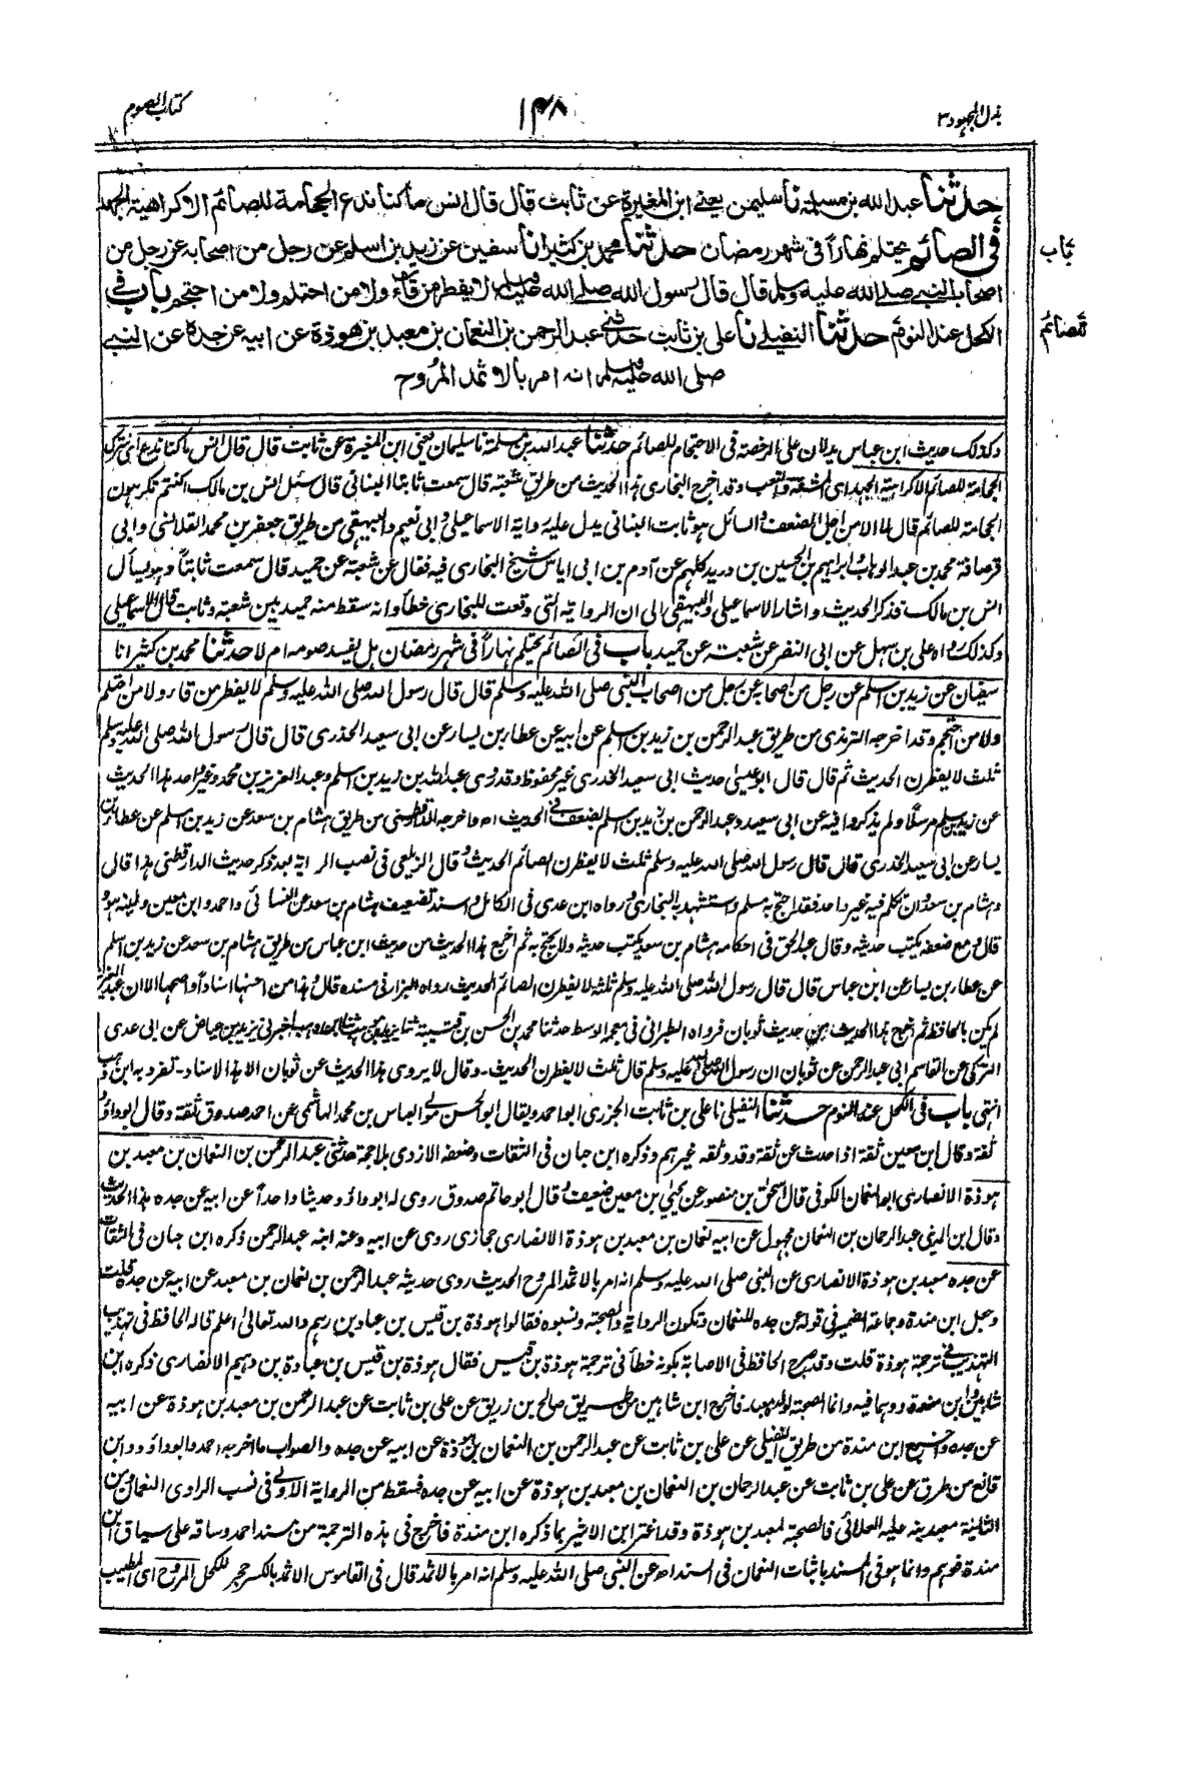 بذل المجهود ٣
١٤٨
كتاب الصوم
حدثنا عبد الله بن مسلمة نا سليمن يعنى ابن المغيرة عن ثابت قال قال انس ما كنا ندع الحجامة للصائم الا كراهية الجهد
باب
فى الصائم يحتلم نهارا فى شهر رمضان حدثنا محمد بن كثير انا سفين عن زيد بن اسلم عن رجل من اصحابه عن رجل من
اصحاب النبى صلى الله عليه وسلم قال قال رسول الله صلى الله عليه وسلم لا يفطر من قاء ولا من احتلم ولا من احتجم باب فى
الكحل عند النوم حدثنا النفيلى نا على بن ثابت حدثنى عبد الرحمن بن النعمان بن معبد بن هوذة عن ابيه عن جده عن النبى
صلى الله عليه وسلم انه امر بالاثمد المروح
وكذلك حديث ابن عباس يدلان على الرخصة فى الاحتجام للصائم حدثنا عبد الله بن مسلمة نا سليمان يعنى ابن المغيرة عن ثابت قال قال انس ما كنا ندع اى نترك
الحجامة للصائم الا كراهية الجهد اى المشقة والتعب وقد اخرج البخارى هذا الحديث من طريق شعبة قال سمعت ثابتا البنانى قال سئل انس بن مالك اكنتم تكرهون
الحجامة للصائم قال لا الا من اجل الضعف والسائل هو ثابت البنانى يدل عليه رواية الاسماعيلى وابى نعيم والبيهقى من طريق جعفر بن محمد القلانسى وابى
قرصافة محمد بن عبد الوهاب وابراهيم بن الحسين بن دريد كلهم عن آدم بن ابى اياس شيخ البخارى فيه فقال عن شعبة عن حميد قال سمعت ثابتا وهو يسأل
انس بن مالك فذكر الحديث واشار الاسماعيلى والبيهقى الى ان الرواية التى وقعت للبخارى خطأ وانه سقط منه حميد بين شعبة وثابت قال الاسماعيلى
وكذلك رواه على بن سهل عن ابى النضر عن شعبة عن حميد باب فى الصائم يحتلم نهارا فى شهر رمضان هل يفسد صومه ام لا حدثنا محمد بن كثير انا
سفيان عن زيد بن اسلم عن رجل من اصحابه عن رجل من اصحاب النبى صلى الله عليه وسلم قال قال رسول الله صلى الله عليه وسلم لا يفطر من قاء ولا من احتلم
ولا من احتجم وقد اخرجه الترمذى من طريق عبد الرحمن بن زيد بن اسلم عن ابيه عن عطاء بن يسار عن ابى سعيد الخدرى قال قال رسول الله صلى الله عليه وسلم
ثلث لا يفطرن الحديث ثم قال قال ابو عيسى حديث ابى سعيد الخدرى غير محفوظ وقد روى عبد الله بن زيد بن اسلم وعبد العزيز بن محمد وغير احد هذا الحديث
عن زيد بن اسلم مرسلا ولم يذكروا فيه عن ابى سعيد وعبد الرحمن بن زيد بن اسلم يضعف فى الحديث اه واخرجه الدارقطنى من طريق هشام بن سعد عن زيد بن اسلم عن عطاء بن
يسار عن ابى سعيد الخدرى قال قال رسول الله صلى الله عليه وسلم ثلث لا يفطرن الصائم الحديث وقال الزيلعى فى نصب الراية بعد ذكر حديث الدارقطنى هذا قال
وهشام بن سعد وان تكلم فيه غير واحد فقد احتج به مسلم واستشهد به البخارى ورواه ابن عدى فى الكامل واسند تضعيف هشام بن سعد عن النسائى واحمد وابن معين ولينه هو
قال ومع ضعفه يكتب حديثه وقال عبد الحق فى احكامه هشام بن سعد يكتب حديثه ولا يحتج به ثم اخرج هذا الحديث من حديث ابن عباس من طريق هشام بن سعد عن زيد بن اسلم
عن عطاء بن يسار عن ابن عباس قال قال رسول الله صلى الله عليه وسلم ثلثة لا يفطرن الصائم الحديث رواه البزار فى مسنده قال وهذا من احسنها اسنادا واصحها الا ان عبد العزيز
لم يكن بالحافظ ثم اخرج هذا الحديث من حديث ثوبان فرواه الطبرانى فى معجمه الوسط حدثنا محمد بن الحسن بن قتيبة ثنا يزيد بن موهب ثنا ابن وهب اخبرنى يزيد بن عياض عن ابى عدى
التركى عن القاسم ابى عبد الرحمن عن ثوبان ان رسول الله صلى الله عليه وسلم قال ثلث لا يفطرن الحديث۔ وقال لا يروى هذا الحديث عن ثوبان الا بهذا الاسناد۔ تفرد به ابن وهب
انتهى باب فى الكحل عند النوم حدثنا النفيلى نا على بن ثابت الجزرى ابو احمد ويقال ابو الحسن مولى العباس بن محمد الهاشمى عن احمد صدوق ثقة وقال ابو داؤد
ثقة وقال ابن معين ثقة اذا حدث عن ثقة وقد وثقه غيرهم وذكره ابن حبان فى الثقات وضعفه الازدى بلا حجة حدثنى عبد الرحمن بن النعمان بن معبد بن
هوذة الانصارى ابو النعمان الكوفى قال اسحق بن منصور عن يحيى بن معين ضعيف وقال ابو حاتم صدوق روى له ابو داؤد حديثا واحدا عن ابيه عن جده هذا الحديث
وقال ابن المدينى عبد الرحمان بن النعمان مجهول عن ابيه نعمان بن معبد بن هوذة الانصارى حجازى روى عن ابيه وعنه ابنه عبد الرحمن ذكره ابن حبان فى الثقات
عن جده معبد بن هوذة الانصارى عن النبى صلى الله عليه وسلم انه امر بالاثمد المروح الحديث روى حديثه عبد الرحمن بن نعمان بن معبد عن ابيه عن جده قلت
وجعل ابن مندة وجماعة الضمير فى قوله عن جده للنعمان وتكون الرواية والصحبة ونسبوه فقالوا هوذة بن قيس بن عباد بن رهم والله تعالى اعلم قاله الحافظ فى تهذيب
التهذيب فى ترجمة هوذة قلت وقد صرح الحافظ فى الاصابة بكونه خطأ فى ترجمة هوذة بن قيس فقال هوذة بن قيس بن عبادة بن دهيم الانصارى ذكره ابن
شاهين وابن مندة ووهما فيه وانما الصحبة لولده معبد فاخرج ابن شاهين من طريق صالح بن زريق عن على بن ثابت عن عبد الرحمن بن معبد بن هوذة عن ابيه
عن جده واخرج ابن مندة من طريق النفيلى عن على بن ثابت عن عبد الرحمن بن النعمان بن هوذة عن ابيه عن جده والصواب ما اخرجه احمد وابو داؤد وابن
قانع من طرق عن على بن ثابت عن عبد الرحمان بن النعمان بن معبد بن هوذة عن ابيه عن جده فسقط من الرواية الاولى فى نسب الراوى النعمان ومن
الثانية معبد نبه عليه العلائى فالصحبة لمعبد بن هوذة وقد اغتر ابن الاثير بما ذكره ابن مندة فاخرج فى هذه الترجمة من مسند احمد وساقه على سياق ابن
مندة فوهم وانما هو فى المسند باثبات النعمان فى السند اه عن النبى صلى الله عليه وسلم انه امر بالاثمد قال فى القاموس الاثمد بالكسر حجر للكحل المروح اى المطيب